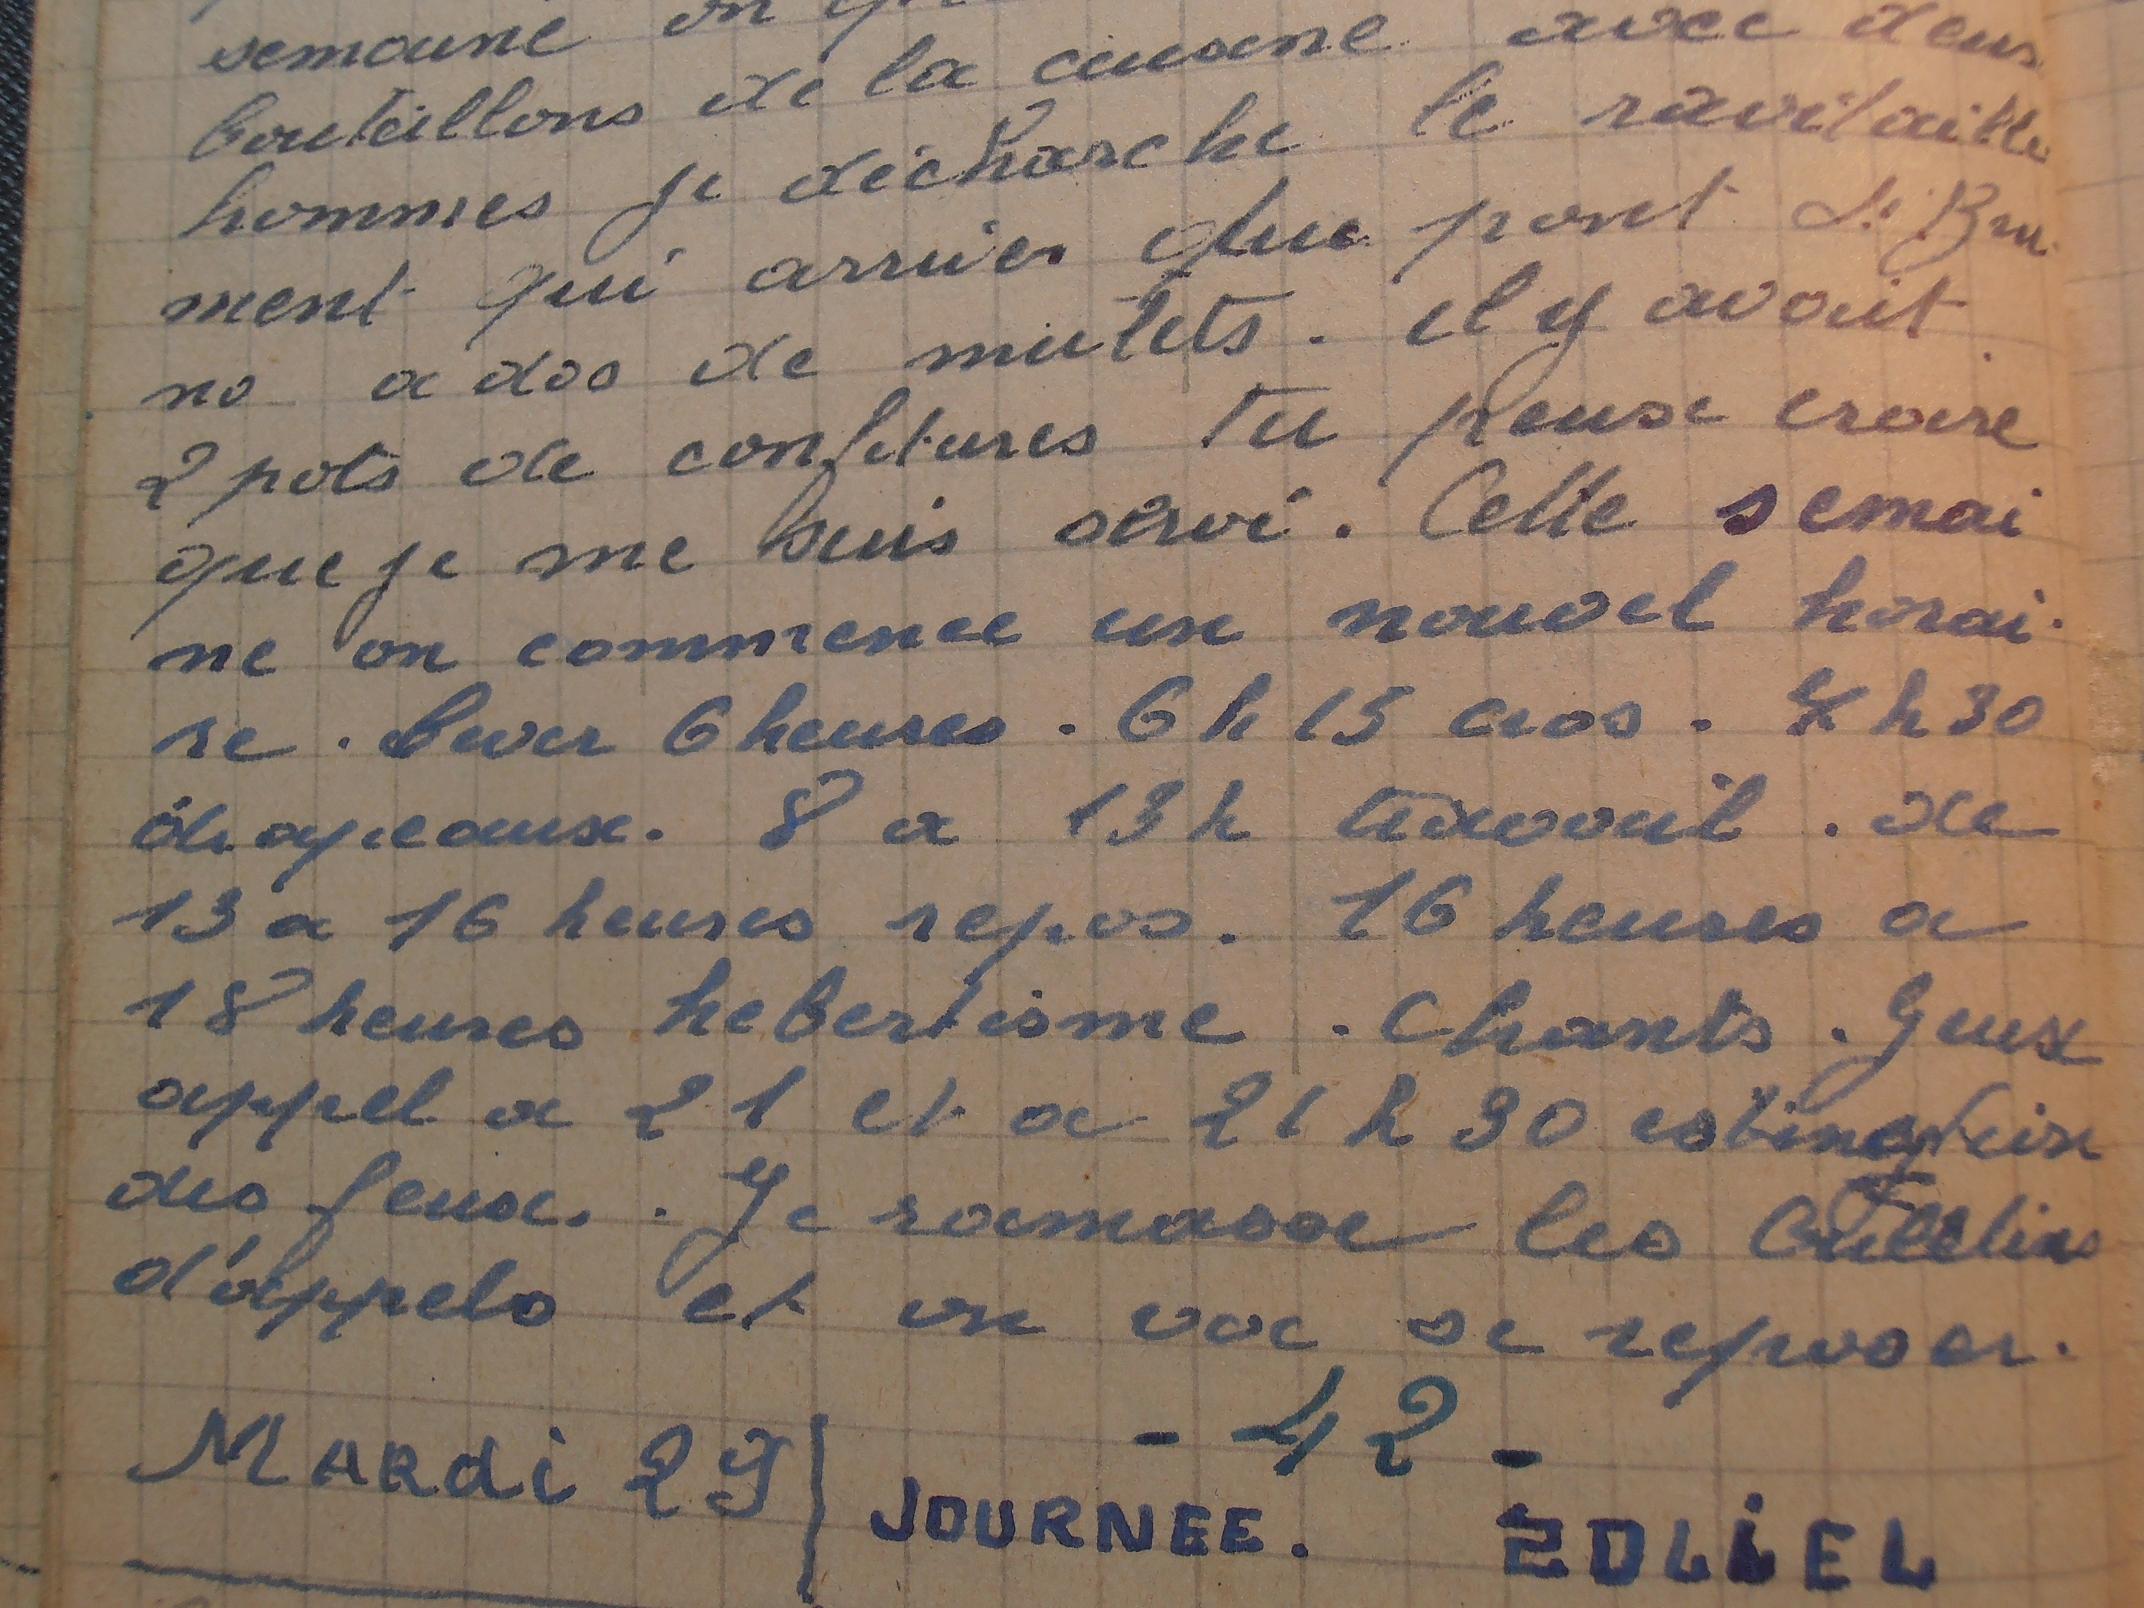 semaine on
bouteillons de la cuisine avec deux
hommes je décharche le ravitaille
ment qui arrive du pont St Bru-
no a dos de mulets. il y avait
2 pots de confitures Tu peuse croire
que je me suis servi. Cette semai
ne on commence un nouvel horai-
re. Lever 6 heures. 6 h 15 cros. 7 h 30
drapeaux. 8 a 13 h travail. de
13 a 16 heures repos. 16 heures a
18 heures hebertisme. Chants. Jeux
appel a 21 et a 21 h 30
des feux. Je ramasse les bulletins
d'appels et on vae se reposer.
- 42 -
MARdi 29 JOURNEE.